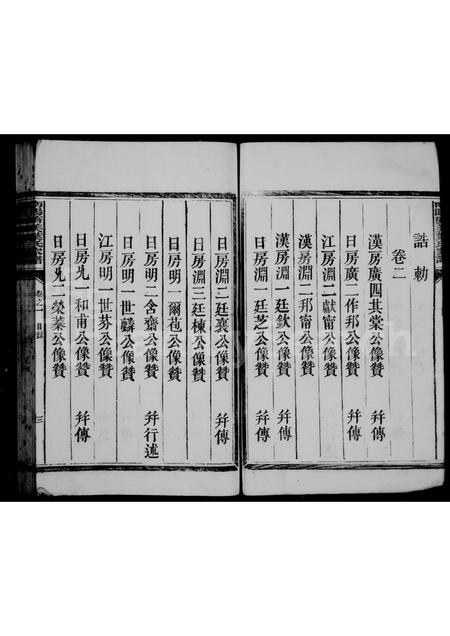 誥勅
卷二
漢房廣四其棠公像贊 幷傳
日房廣二作邦公像贊 幷傳
江房淵二獻甯公像贊
漢房淵二邦甯公像贊
漢房淵一廷欽公像贊 幷傳
日房淵一廷芝公像贊 幷傳
日房淵二廷襄公像贊 幷傳
日房淵三廷棟公像贊
日房明一爾苞公像贊
日房明二含齋公像贊 幷行述
日房明一世麟公像贊
江房明一世芬公像贊
日房先一和甫公像贊 幷傳
日房先二榮蓁公像贊
卷之一 目錄 三